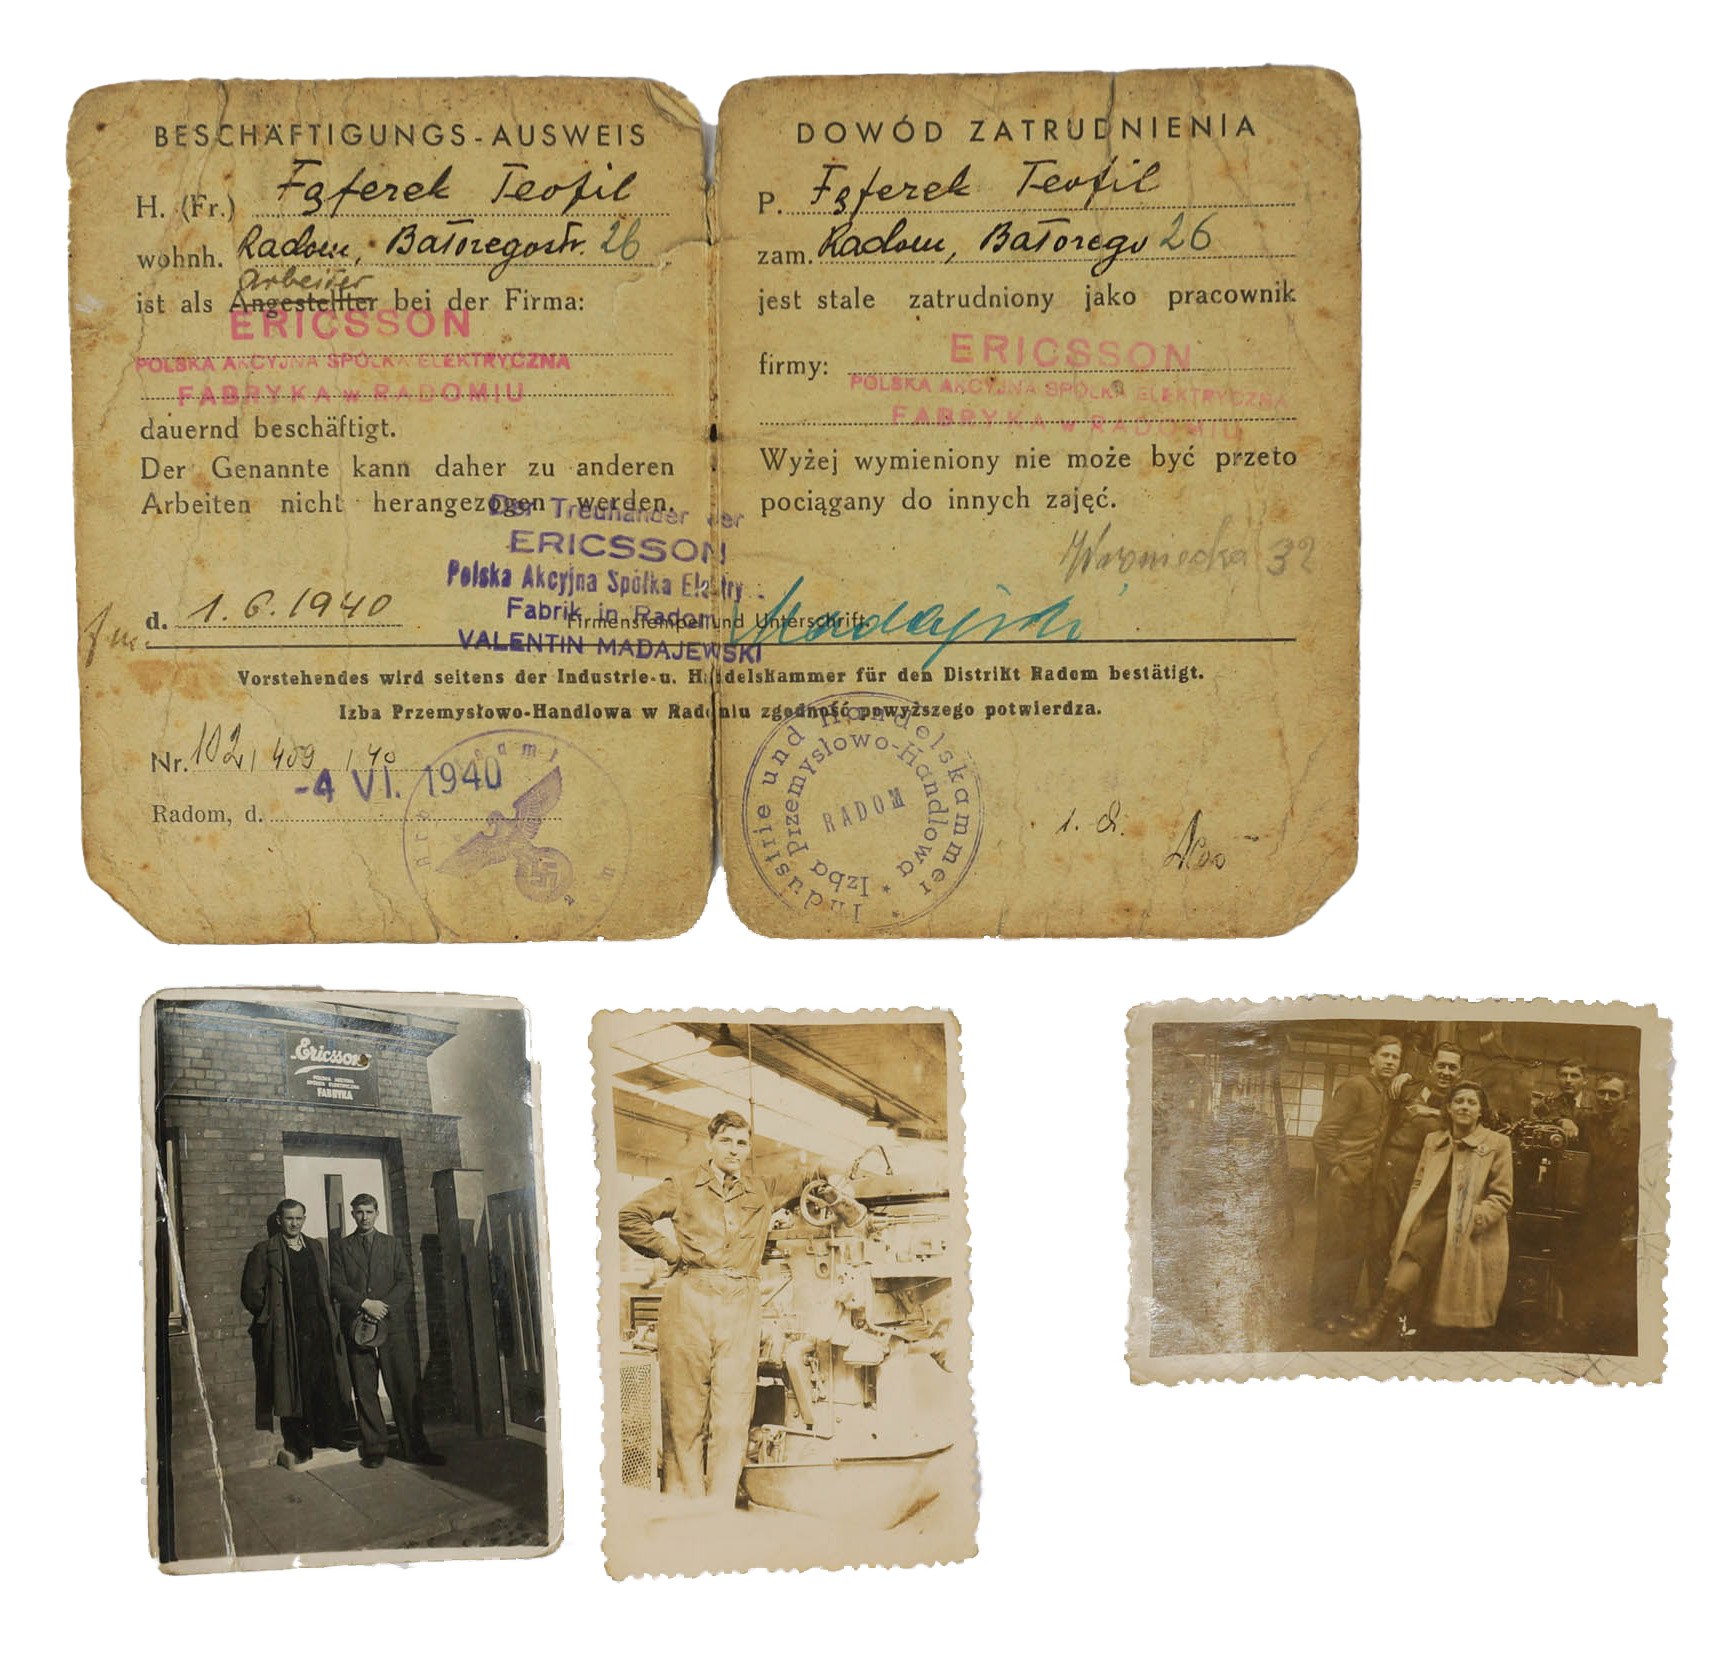 BESCHÄFTIGUNGS-AUSWEIS
H. (Fr.) Fąferek Teofil
wohnh. Radom, Batoregostr. 26
Arbeiter
ist als Angestellter bei der Firma:
ERICSSON
POLSKA AKCYJNA SPÓŁKA ELEKTRYCZNA
FABRYKA w RADOMIU
dauernd beschäftigt.
Der Genannte kann daher zu anderen
Arbeiten nicht herangezogen werden.
Der Treuhänder der
ERICSSON
Polska Akcyjna Spółka Elektry.
Fabrik in Radom
VALENTIN MADAJEWSKI
d. 1.6.1940
Firmenstempel und Unterschrift
DOWÓD ZATRUDNIENIA
P. Fąferek Teofil
zam. Radom, Batorego 26
jest stale zatrudniony jako pracownik
firmy: ERICSSON
POLSKA AKCYJNA SPÓŁKA ELEKTRYCZNA
FABRYKA w RADOMIU
Wyżej wymieniony nie może być przeto
pociągany do innych zajęć.
32
Madajski
Vorstehendes wird seitens der Industrie-u. Handelskammer für den Distrikt Radom bestätigt.
Izba Przemysłowo-Handlowa w Radomiu zgodność powyższego potwierdza.
Nr. 102/409/40
-4 VI. 1940
Radom, d.
Industrie und Handelskammer
Izba Przemysłowo-Handlowa
RADOM
Ericsson
POLSKA AKCYJNA
SPÓŁKA ELEKTRYCZNA
FABRYKA